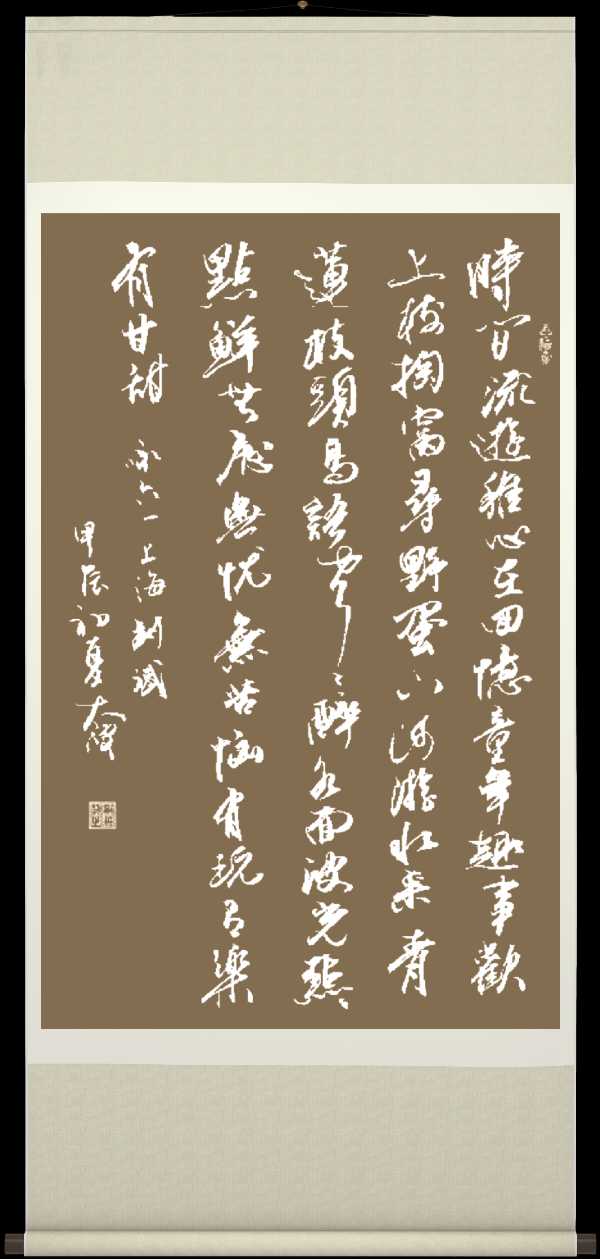 時間流逝稚心在回憶童年趣事歡
上樹掏窩尋野蛋下河游水采青
蓮枝頭鳥語聲々醉水面波光點
點鮮無慮無忧無苦惱有玩有樂
有甘甜 詠六一上海劉斌
甲辰初夏